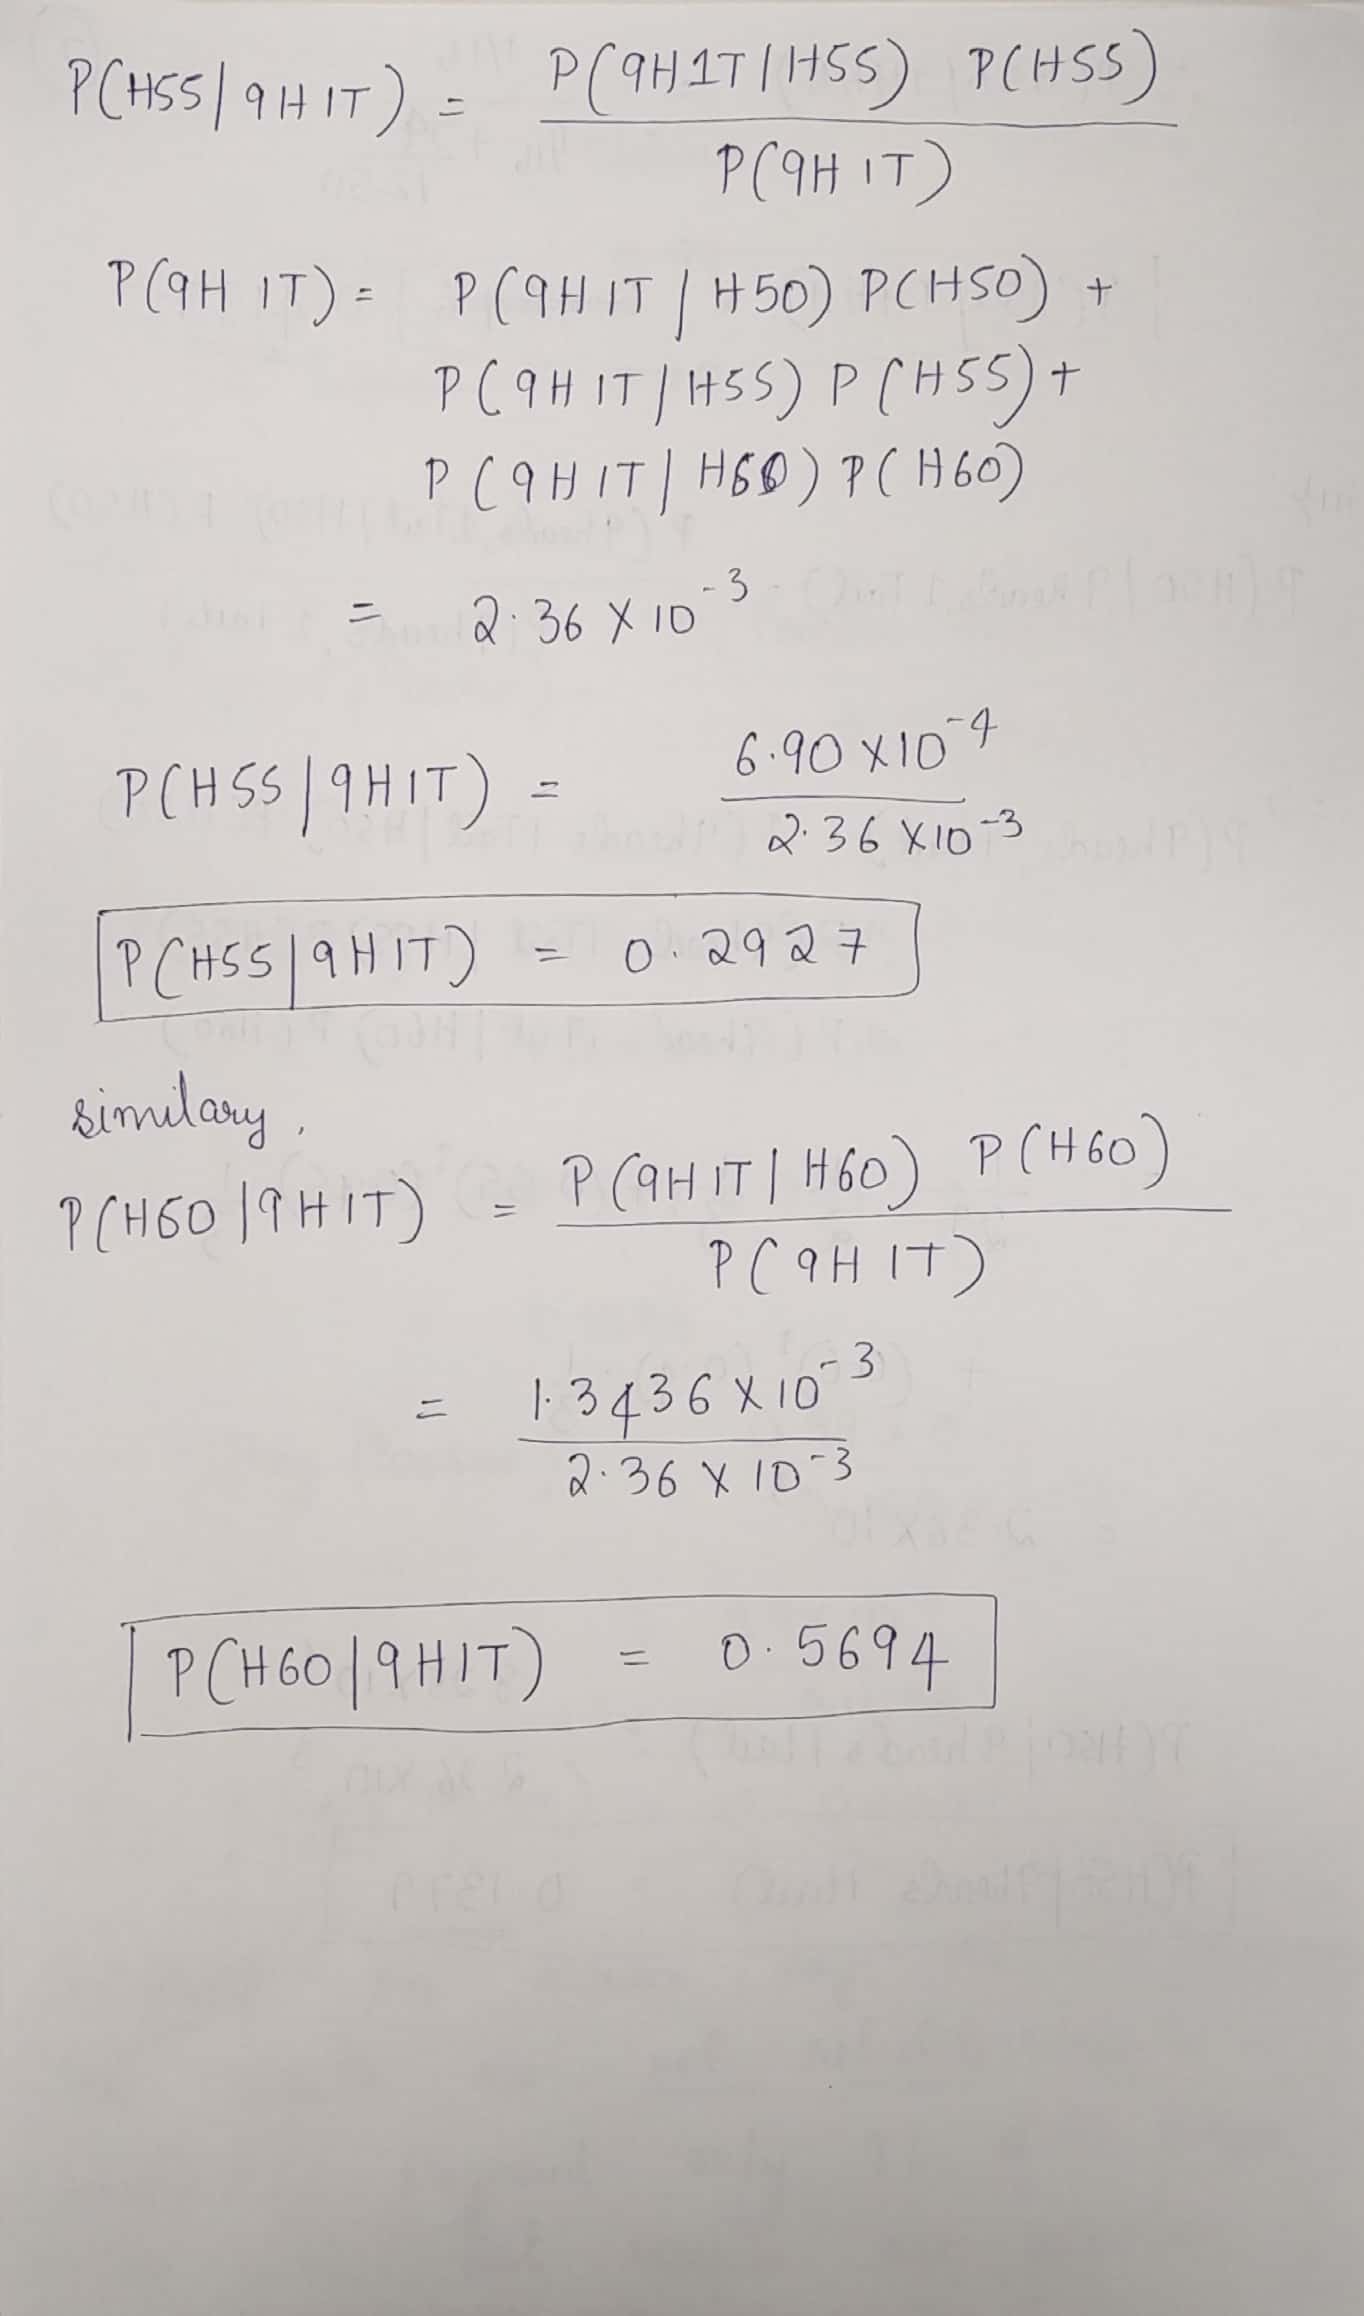 P(H55/9H1T) = P(9H1T/H55) P(H55)
P(9H1T)
P(9H 1T) = P(9H1T/H50) P(H50) +
P(9H1T/H55) P(H55) +
P(9H1T/H60) P(H60)
= 2.36 X 10^-3
P(H55/9H1T) = 6.90 X10^-4
2.36 X10^-3
P(H55/9H1T) = 0.2927
similary,
P(H60/9H1T) = P(9H1T/H60) P(H60)
P(9H 1T)
= 1.3436 X 10^-3
2.36 X 10^-3
P(H60/9H1T) = 0.5694